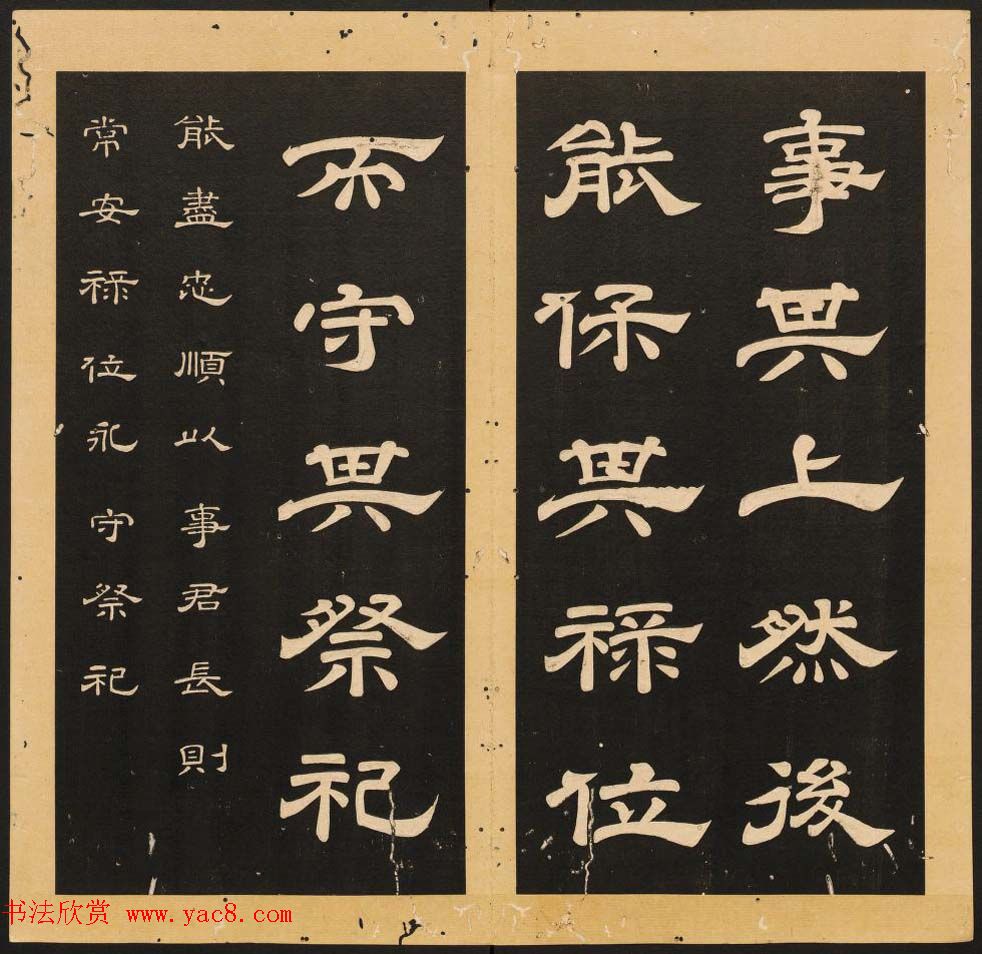 事其上然後
能保其禄位
而守其祭祀
能盡忠順以事君長則
常安禄位永守祭祀
书法欣赏 www.yac8.com